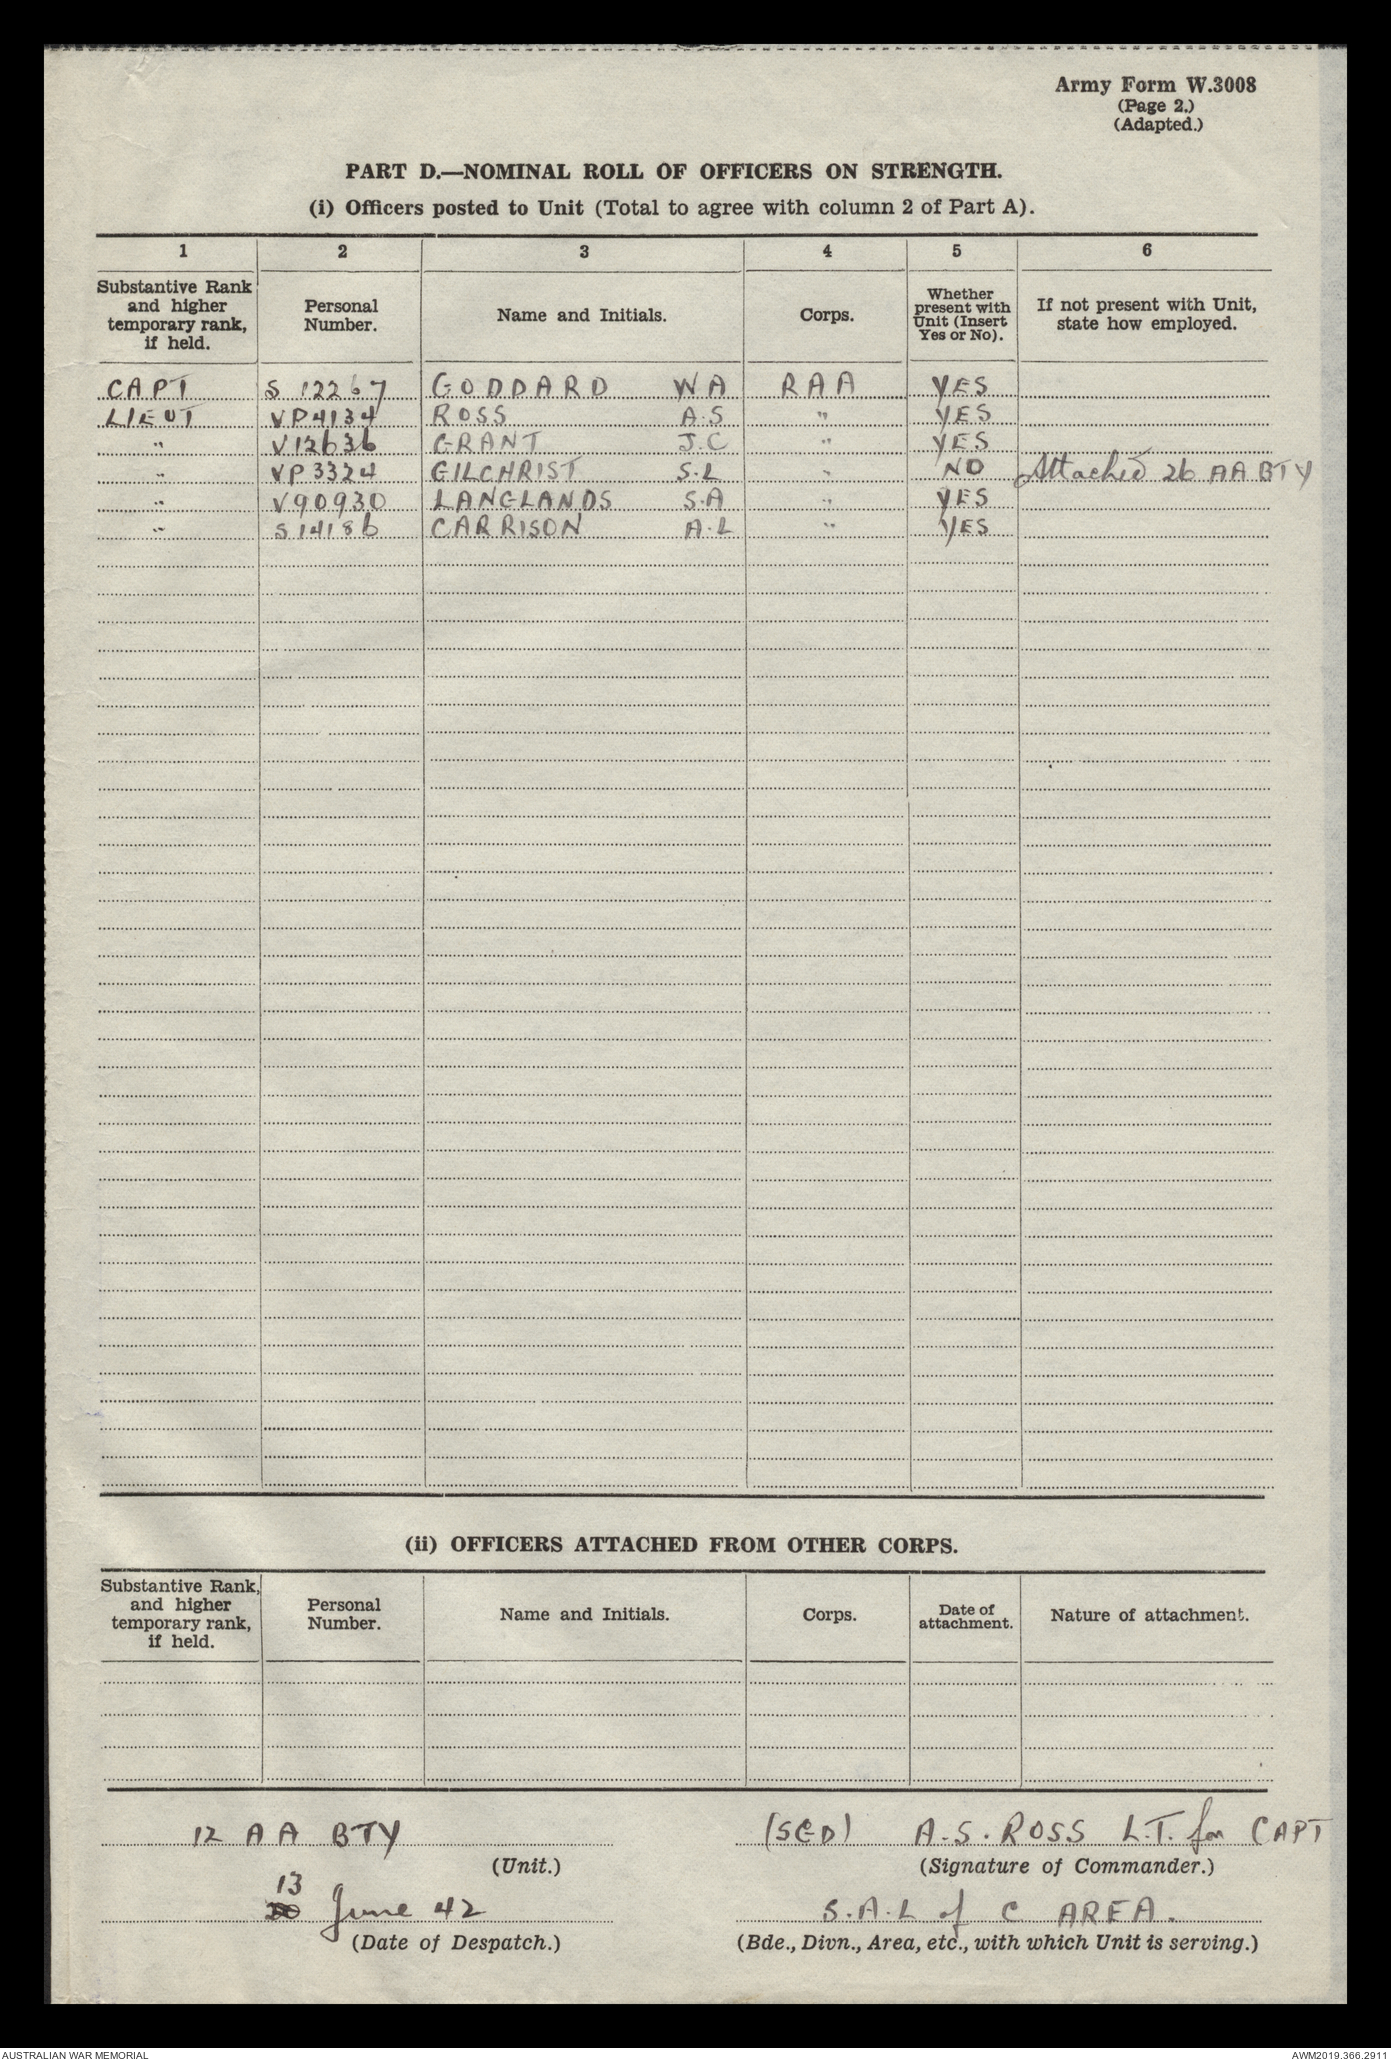 Army Form W.3008
(Page 2.)
(Adapted.)
PART D.—NOMINAL ROLL OF OFFICERS ON STRENGTH.
(i) Officers posted to Unit (Total to agree with column 2 of Part A).
1 2 3 4 5 6
Substantive Rank and higher temporary rank, if held. Personal Number. Name and Initials. Corps. Whether present with Unit (Insert Yes or No). If not present with Unit, state how employed.
CAPT S 12267 GODDARD W A R A A YES
LIEUT VP4134 ROSS A.S " YES
" V12636 GRANT J.C " YES
" VP3324 GILCHRIST S.L " NO Attached 26 AA BTY
" V90930 LANGLANDS S.A " YES
" S14186 CARRISON A.L " YES
(ii) OFFICERS ATTACHED FROM OTHER CORPS.
Substantive Rank, and higher temporary rank, if held. Personal Number. Name and Initials. Corps. Date of attachment. Nature of attachment.
12 A A BTY (SGD) A.S. ROSS L.T. for CAPT
(Unit.) (Signature of Commander.)
13 June 42 S.A.L of C AREA.
(Date of Despatch.) (Bde., Divn., Area, etc., with which Unit is serving.)
AUSTRALIAN WAR MEMORIAL AWM2019.366.2911